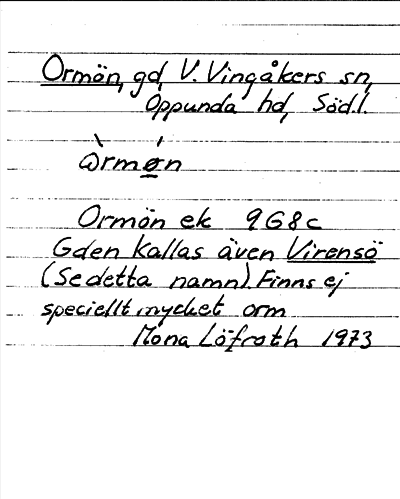 Ormön, gd, V. Vingåkers sn,
Oppunda hd, Söd.l.
òrmǿ̲n
Ormön ek 9G8c
Gden kallas även Virensö
(Se detta namn). Finns ej
speciellt mycket orm
Mona Löfroth 1973